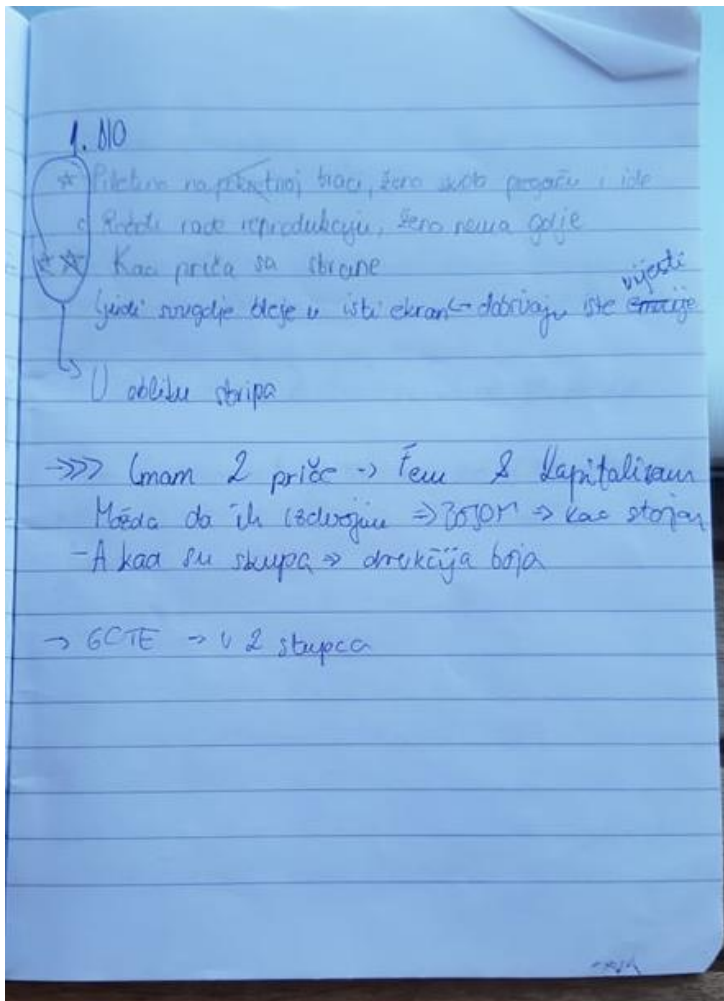 1. DIO
☆ Piletina na pokretnoj traci, žena skoto pregaču i ide
Roboti rade reprodukciju, žena nema gdje
☆☆ Kao priča sa strane
vijesti
ljudi svugdje bleje u isti ekran ↔ dobivaju iste emocije
→ U obliku stripa
→>> Imam 2 priče → Fem & Kapitalizam
Možda da ih izdvojim ⇒ BOJOM ⇒ kao
- A kad su skupa ⇒ drukčija boja
→ → u 2 stupca